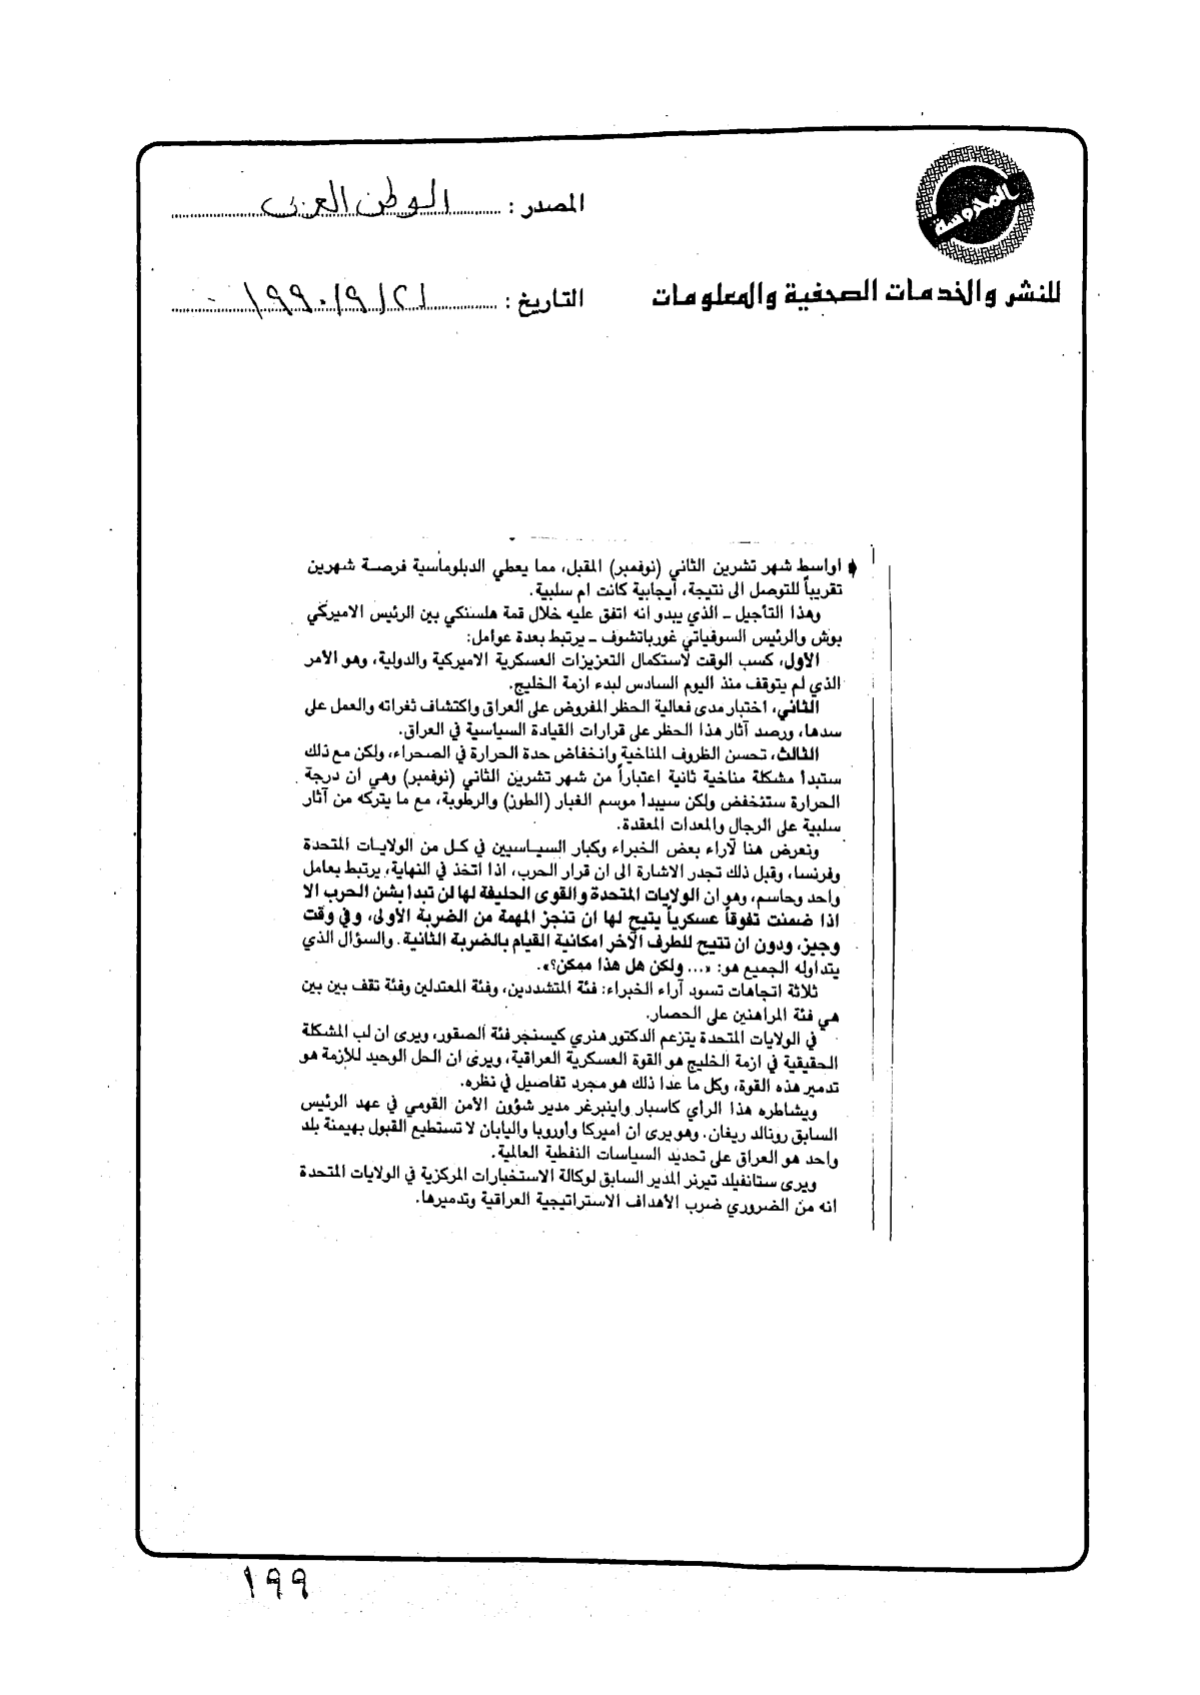 المصدر : الوطن العربي
للنشر والخدمات الصحفية والمعلومات
التاريخ : ٢١/٩/١٩٩٠
اواسط شهر تشرين الثاني (نوفمبر) المقبل، مما يعطي الدبلوماسية فرصة شهرين
تقريباً للتوصل الى نتيجة، أيجابية كانت ام سلبية.
وهذا التأجيل ــ الذي يبدو انه اتفق عليه خلال قمة هلسنكي بين الرئيس الاميركي
بوش والرئيس السوفياتي غورباتشوف ــ يرتبط بعدة عوامل:
الأول، كسب الوقت لاستكمال التعزيزات العسكرية الاميركية والدولية، وهو الأمر
الذي لم يتوقف منذ اليوم السادس لبدء ازمة الخليج.
الثاني، اختبار مدى فعالية الحظر المفروض على العراق واكتشاف ثغراته والعمل على
سدها، ورصد آثار هذا الحظر على قرارات القيادة السياسية في العراق.
الثالث، تحسن الظروف المناخية وانخفاض حدة الحرارة في الصحراء، ولكن مع ذلك
ستبدا مشكلة مناخية ثانية اعتباراً من شهر تشرين الثاني (نوفمبر) وهي ان درجة
الحرارة ستنخفض ولكن سيبدا موسم الغبار (الطوز) والرطوبة، مع ما يتركه من آثار
سلبية على الرجال والمعدات المعقدة.
ونعرض هنا لآراء بعض الخبراء وكبار السياسيين في كل من الولايات المتحدة
وفرنسا، وقبل ذلك تجدر الاشارة الى ان قرار الحرب، اذا اتخذ في النهاية، يرتبط بعامل
واحد وحاسم، وهو ان الولايات المتحدة والقوى الحليفة لها لن تبدا بشن الحرب الا
اذا ضمنت تفوقاً عسكرياً يتيح لها ان تنجز المهمة من الضربة الأولى، وفي وقت
وجيز، ودون ان تتيح للطرف الآخر امكانية القيام بالضربة الثانية. والسؤال الذي
يتداوله الجميع هو: «... ولكن هل هذا ممكن؟».
ثلاثة اتجاهات تسود آراء الخبراء: فئة المتشددين، وفئة المعتدلين وفئة تقف بين بين
هي فئة المراهنين على الحصار.
في الولايات المتحدة يتزعم الدكتور هنري كيسنجر فئة الصقور، ويرى ان لب المشكلة
الحقيقية في ازمة الخليج هو القوة العسكرية العراقية، ويرى ان الحل الوحيد للأزمة هو
تدمير هذه القوة، وكل ما عدا ذلك هو مجرد تفاصيل في نظره.
ويشاطره هذا الرأي كاسبار واينبرغر مدير شؤون الأمن القومي في عهد الرئيس
السابق رونالد ريغان. وهو يرى ان اميركا وأوروبا واليابان لا تستطيع القبول بهيمنة بلد
واحد هو العراق على تحديد السياسات النفطية العالمية.
ويرى ستانفيلد تيرنر المدير السابق لوكالة الاستخبارات المركزية في الولايات المتحدة
انه من الضروري ضرب الأهداف الاستراتيجية العراقية وتدميرها.
١٩٩